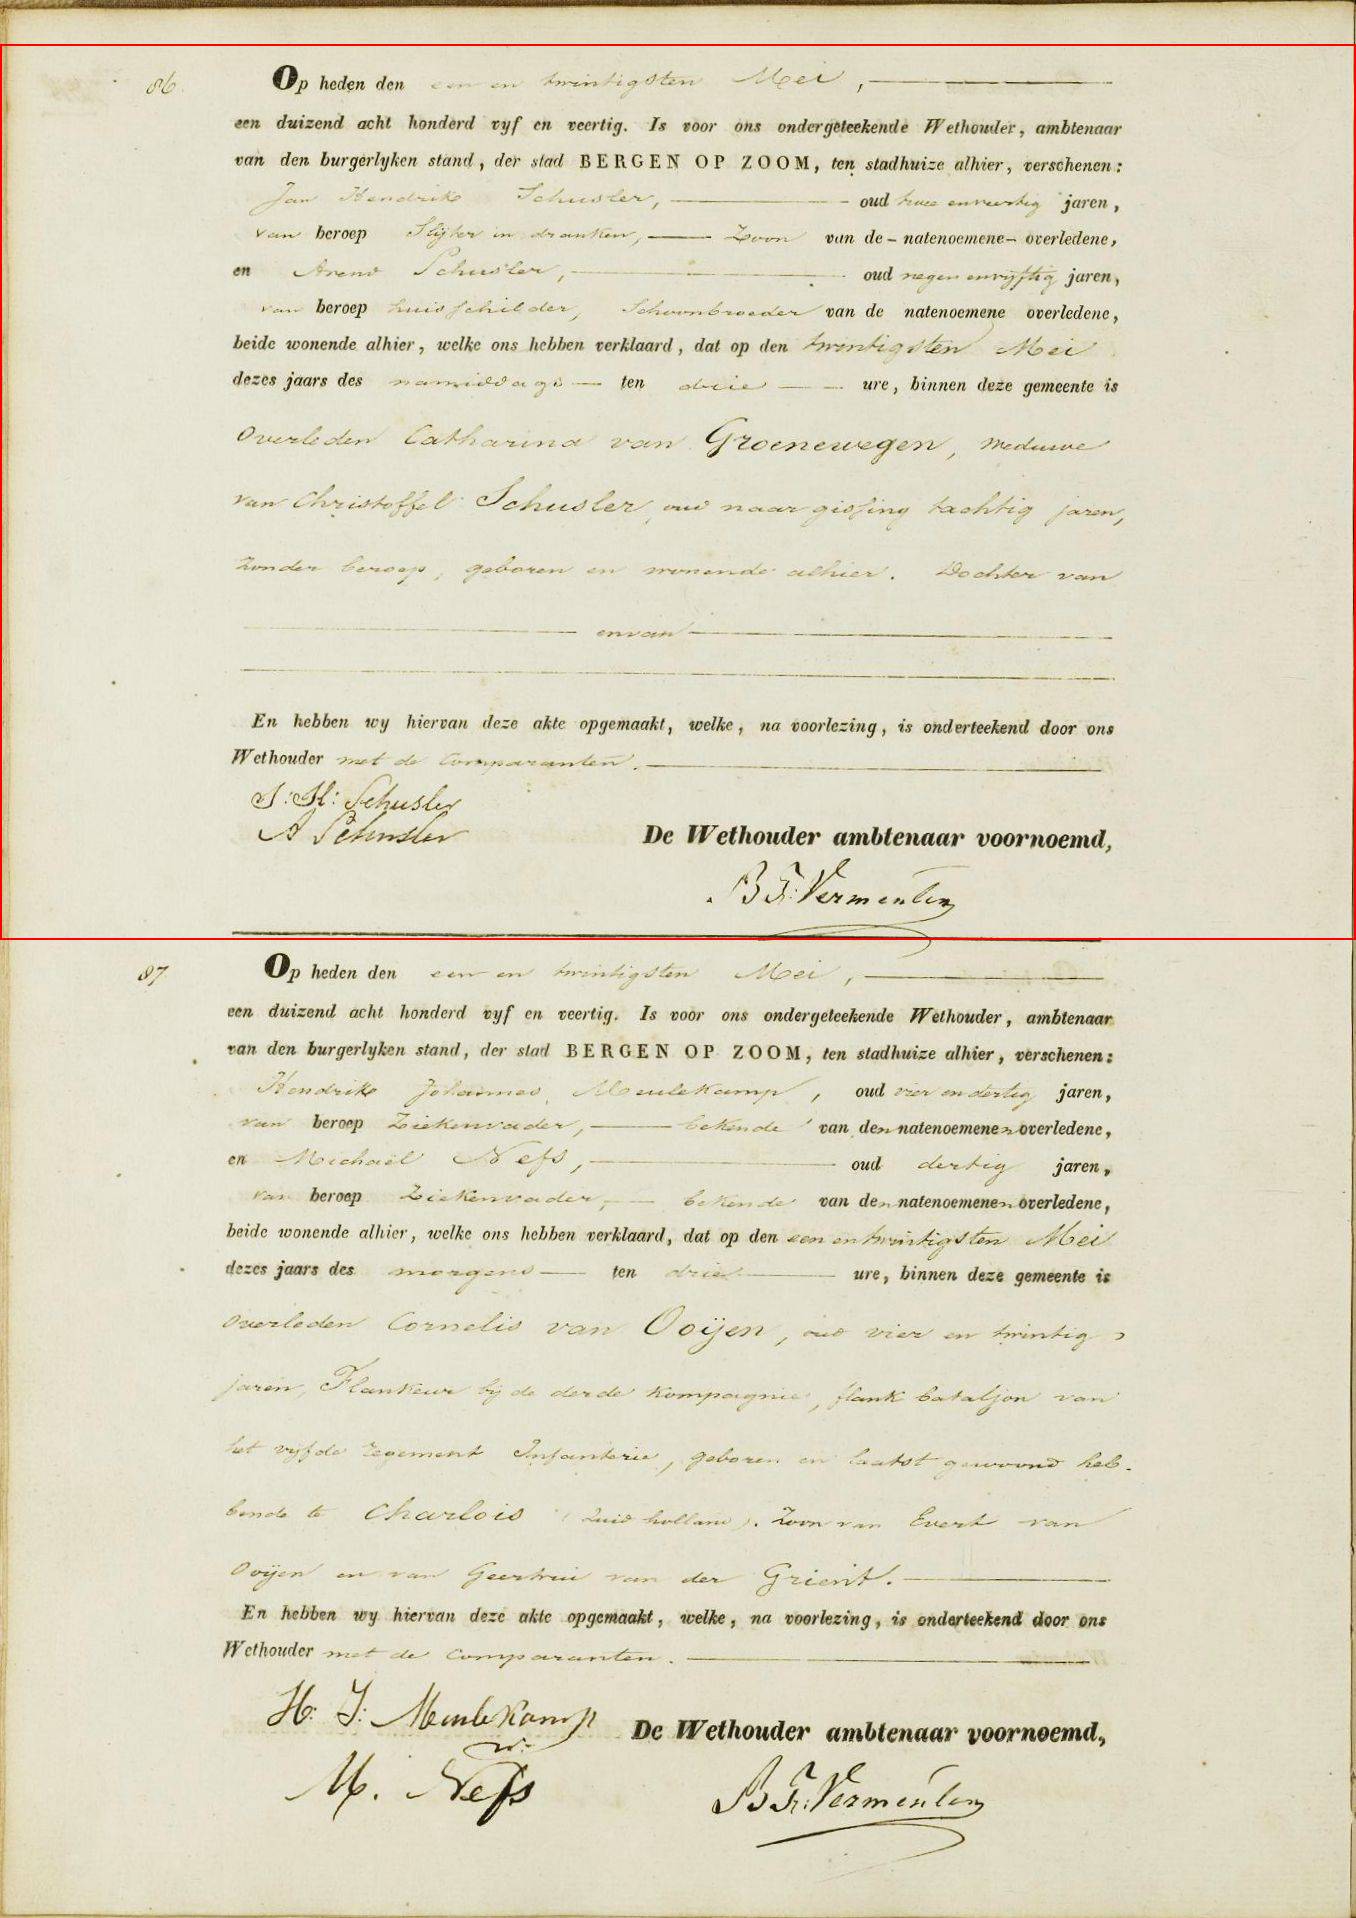 86.
Op heden den een en twintigsten Mei,
een duizend acht honderd vyf en veertig. Is voor ons ondergeteekende Wethouder, ambtenaar
van den burgerlyken stand, der stad BERGEN OP ZOOM, ten stadhuize alhier, verschenen:
Jan Hendrik Schusler, oud twee en veertig jaren,
van beroep Slijter in dranken, Zoon van de natenoemene overledene,
en Arend Schusler, oud negen en vijftig jaren,
van beroep huisschilder, Schoonbroeder van de natenoemene overledene,
beide wonende alhier, welke ons hebben verklaard, dat op den twintigsten Mei
dezes jaars des namiddags ten drie ure, binnen deze gemeente is
overleden Catharina van Groenewegen, weduwe
van Christoffel Schusler, oud naar gissing tachtig jaren,
zonder beroep, geboren en wonende alhier. Dochter van
en van
En hebben wy hiervan deze akte opgemaakt, welke, na voorlezing, is onderteekend door ons
Wethouder met de Comparanten.
J: H: Schusler
A Schusler
De Wethouder ambtenaar voornoemd,
B F: Vermeulen
87
Op heden den een en twintigsten Mei,
een duizend acht honderd vyf en veertig. Is voor ons ondergeteekende Wethouder, ambtenaar
van den burgerlyken stand, der stad BERGEN OP ZOOM, ten stadhuize alhier, verschenen:
Hendrik Johannes Meulekamp, oud vier en dertig jaren,
van beroep Ziekenvader, bekende van den natenoemenen overledene,
en Michaël Nefs, oud dertig jaren,
van beroep Ziekenvader, bekende van den natenoemenen overledene,
beide wonende alhier, welke ons hebben verklaard, dat op den een en twintigsten Mei
dezes jaars des morgens ten drie ure, binnen deze gemeente is
overleden Cornelis van Ooijen, oud vier en twintig
jaren, Flankeur bij de derde kompagnie, flank bataljon van
het vijfde regement Infanterie, geboren en laatst gewoond heb-
bende te Charlois (Zuid holland). Zoon van Evert van
Ooijen en van Geertrui van der Grient.
En hebben wy hiervan deze akte opgemaakt, welke, na voorlezing, is onderteekend door ons
Wethouder met de Comparanten.
H: J: Meulekamp
De Wethouder ambtenaar voornoemd,
M. Nefs
B F: Vermeulen